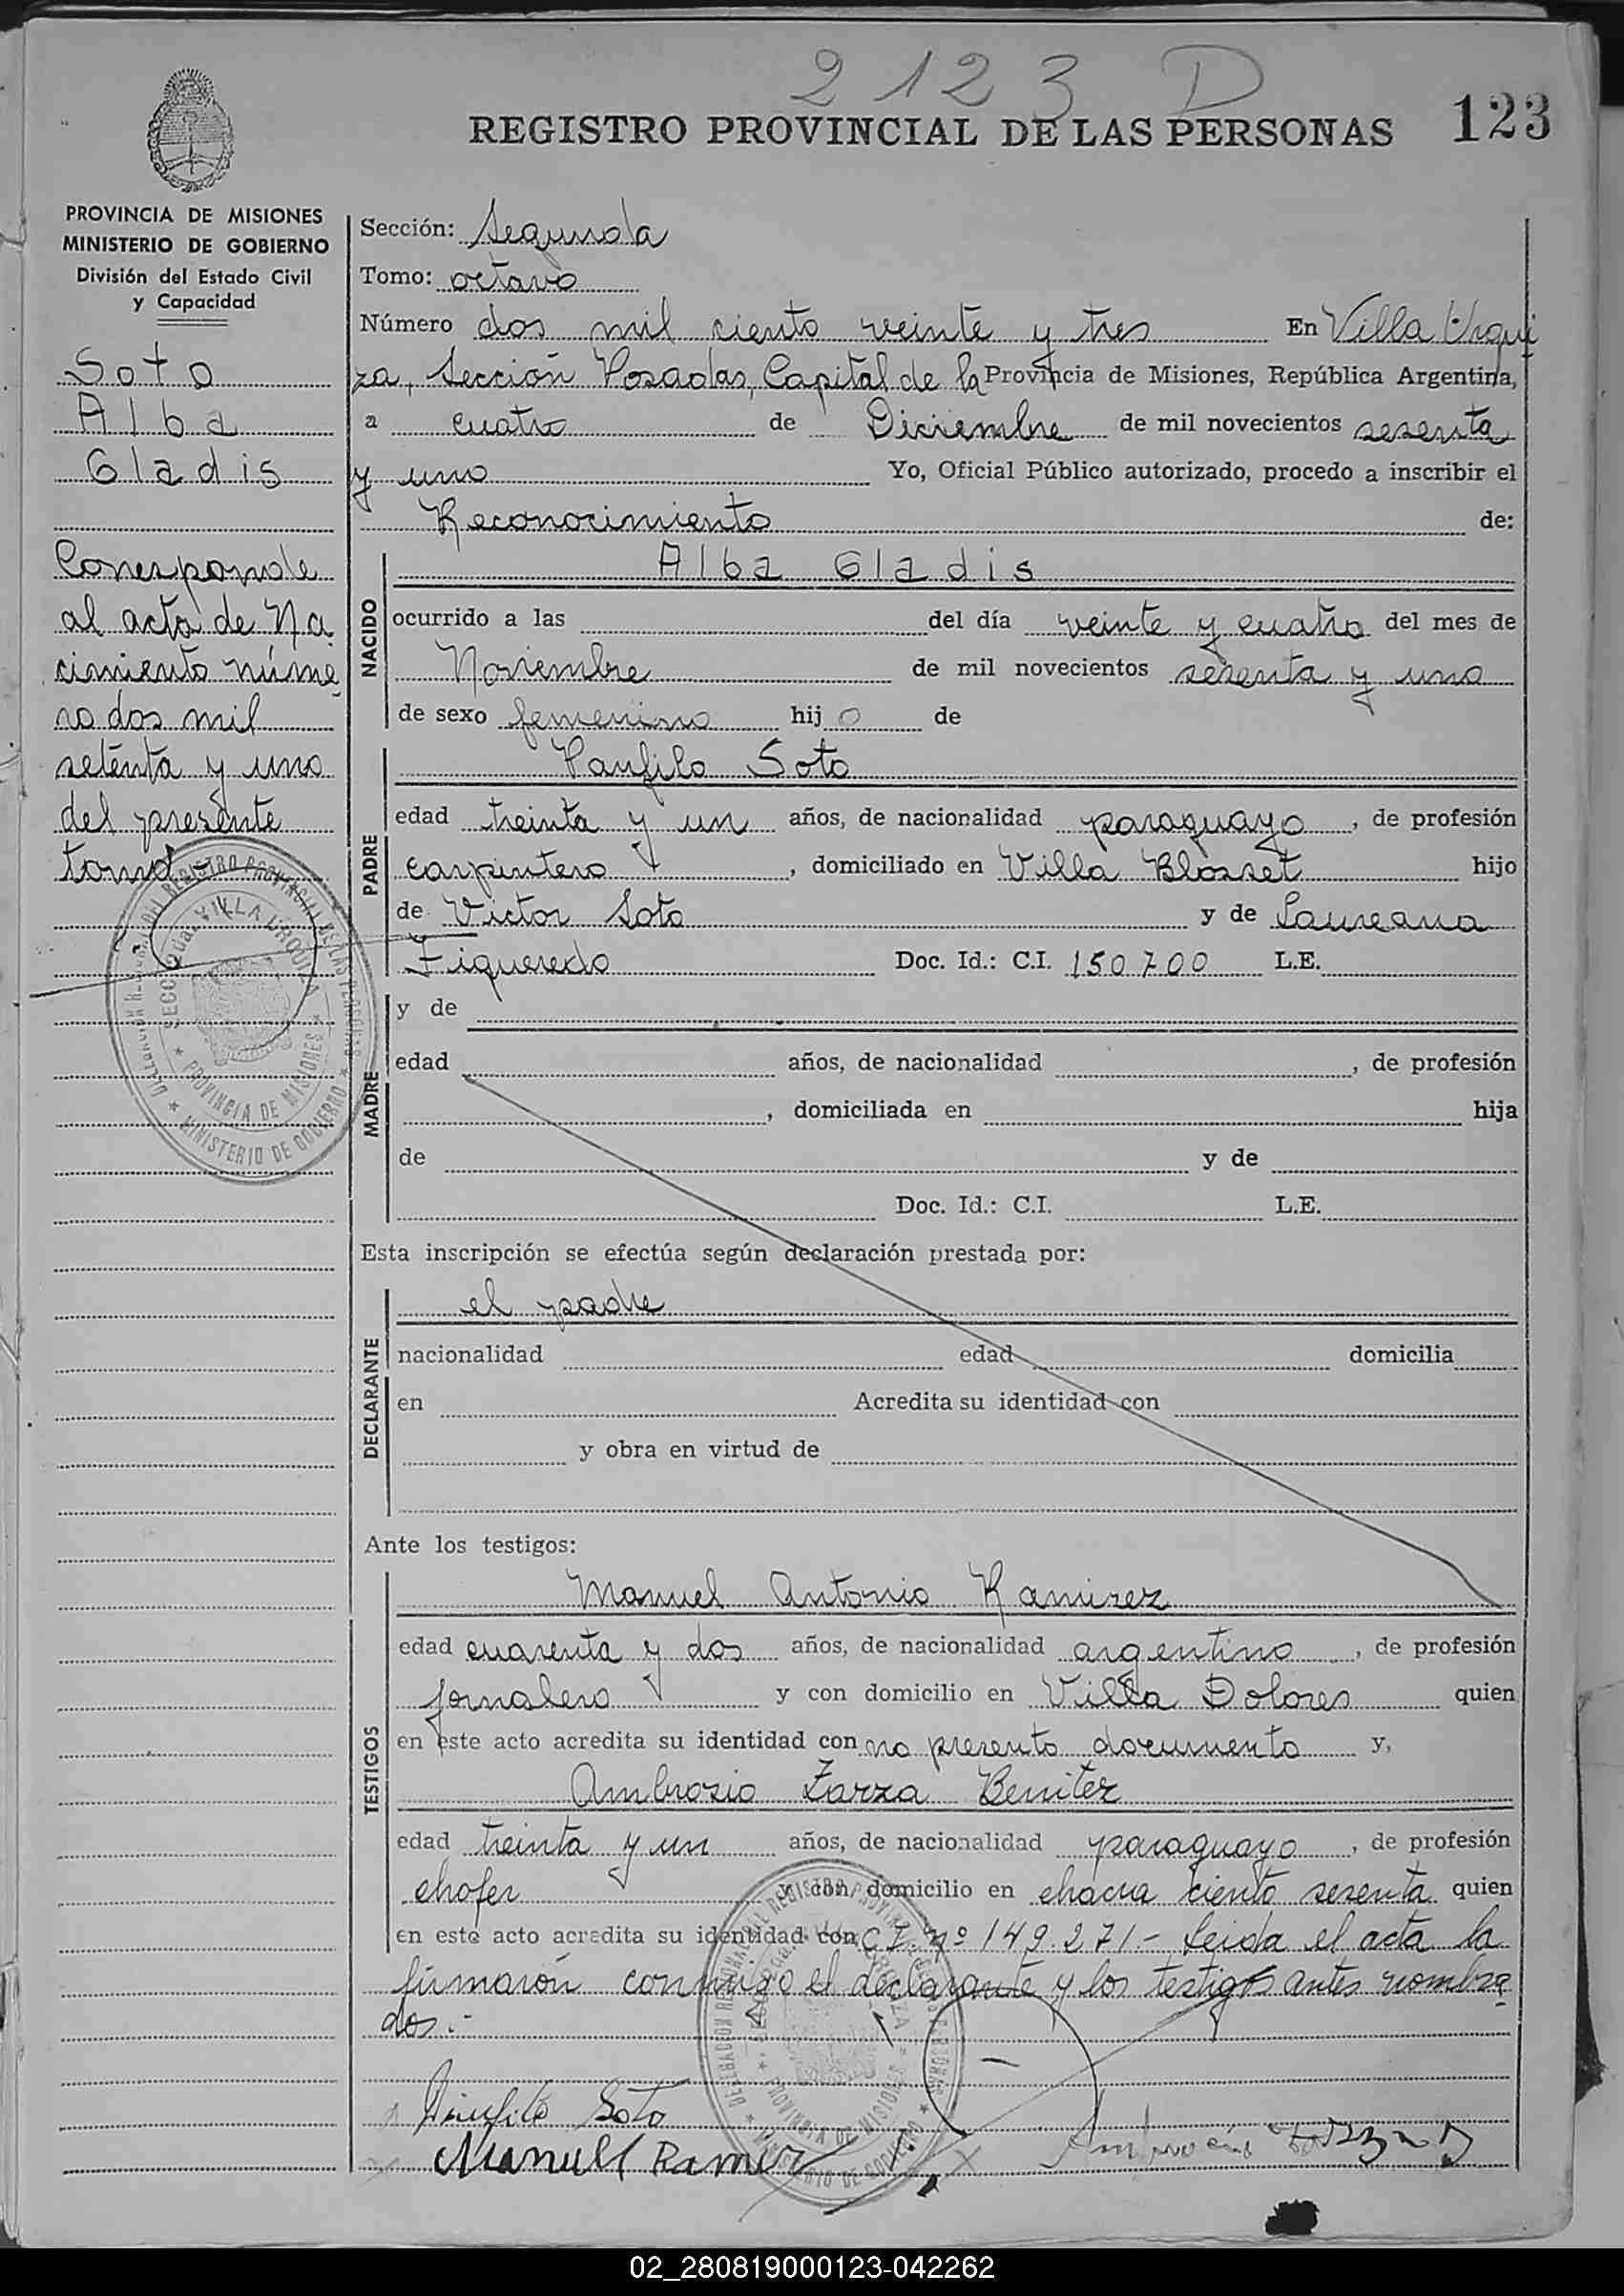 2123 D
REGISTRO PROVINCIAL DE LAS PERSONAS
123
PROVINCIA DE MISIONES
MINISTERIO DE GOBIERNO
División del Estado Civil
y Capacidad
Soto
Alba
Gladis
Corresponde
al acta de Na
cimiento núme
ro dos mil
setenta y uno
del presente
tomo
Sección: Segunda
Tomo: octavo
Número dos mil ciento veinte y tres En Villa Urqui
za, Sección Posadas, Capital de la Provincia de Misiones, República Argentina,
a cuatro de Diciembre de mil novecientos sesenta
y uno Yo, Oficial Público autorizado, procedo a inscribir el
Reconocimiento de:
NACIDO
Alba Gladis
ocurrido a las del día veinte y cuatro del mes de
Noviembre de mil novecientos sesenta y uno
de sexo femenino hijo de
PADRE
Panfilo Soto
edad treinta y un años, de nacionalidad paraguayo, de profesión
carpintero, domiciliado en Villa Blosset hijo
de Victor Soto y de Laureana
Figueredo Doc. Id.: C.I. 150700 L.E.
MADRE
y de
edad años, de nacionalidad , de profesión
, domiciliada en hija
de y de
Doc. Id.: C.I. L.E.
Esta inscripción se efectúa según declaración prestada por:
DECLARANTE
el padre
nacionalidad edad domicilia
en Acredita su identidad con
y obra en virtud de
Ante los testigos:
TESTIGOS
Manuel Antonio Ramirez
edad cuarenta y dos años, de nacionalidad argentino, de profesión
jornalero y con domicilio en Villa Dolores quien
en este acto acredita su identidad con no presento documento y,
Ambrosio Zarza Benitez
edad treinta y un años, de nacionalidad paraguayo, de profesión
chofer y con domicilio en chacra ciento sesenta quien
en este acto acredita su identidad con C.I. nº 149.271.- Leida el acta la
firmarón conmigo el declarante y los testigos antes nombra
dos.-
Soto
Manuel Ramirez
SECC. 2da. VILLA URQUIZA
PROVINCIA DE MISIONES
MINISTERIO DE GOBIERNO
02_280819000123-042262